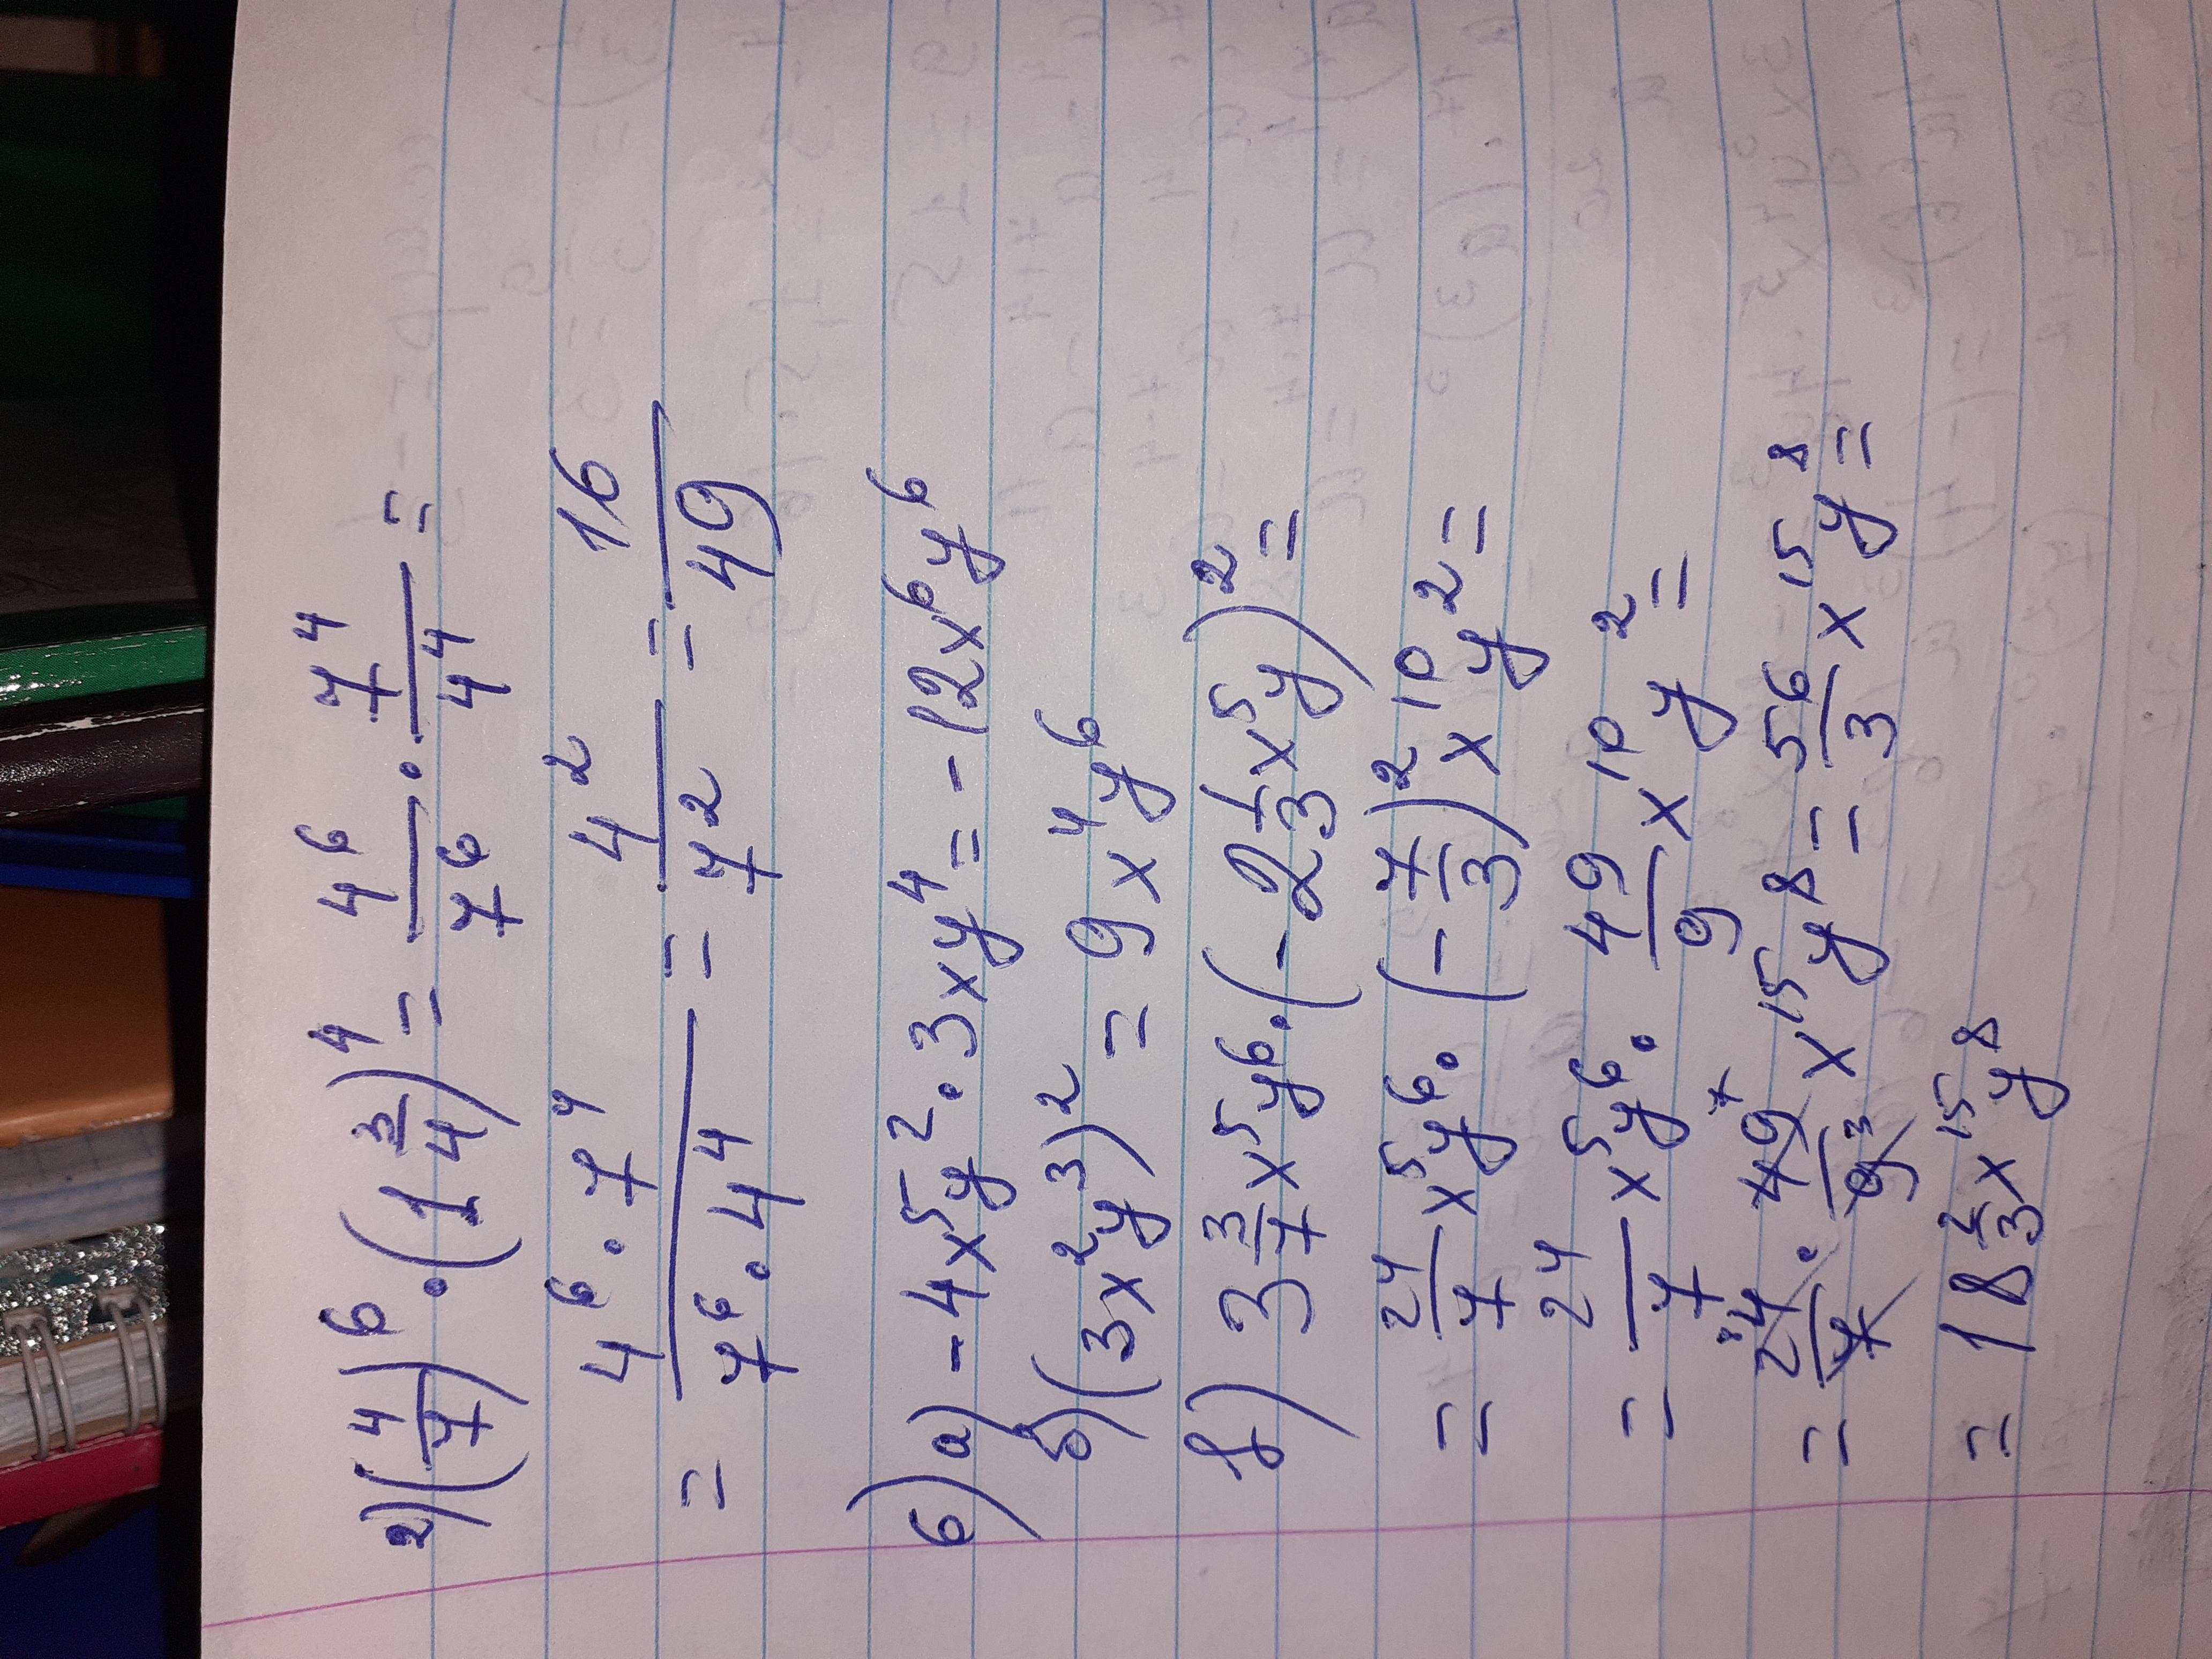 2) (4/7)^6 · (1 3/4)^4 = 4^6/7^6 · 7^4/4^4 =
= 4^6 · 7^4 / 7^6 · 4^4 = 4^2/7^2 = 16/49
6) а) -4x^5y^2 · 3xy^4 = -12x^6y^6
б) (3x^2y^3)^2 = 9x^4y^6
8) 3 3/7 x^5y^6 · (-2 1/3 x^5y)^2 =
= 24/7 x^5y^6 · (-7/3)^2 x^10 y^2 =
= 24/7 x^5y^6 · 49/9 x^10 y^2 =
= 24/7 · 49/9 x^15 y^8 = 56/3 x^15 y^8 =
= 18 2/3 x^15 y^8